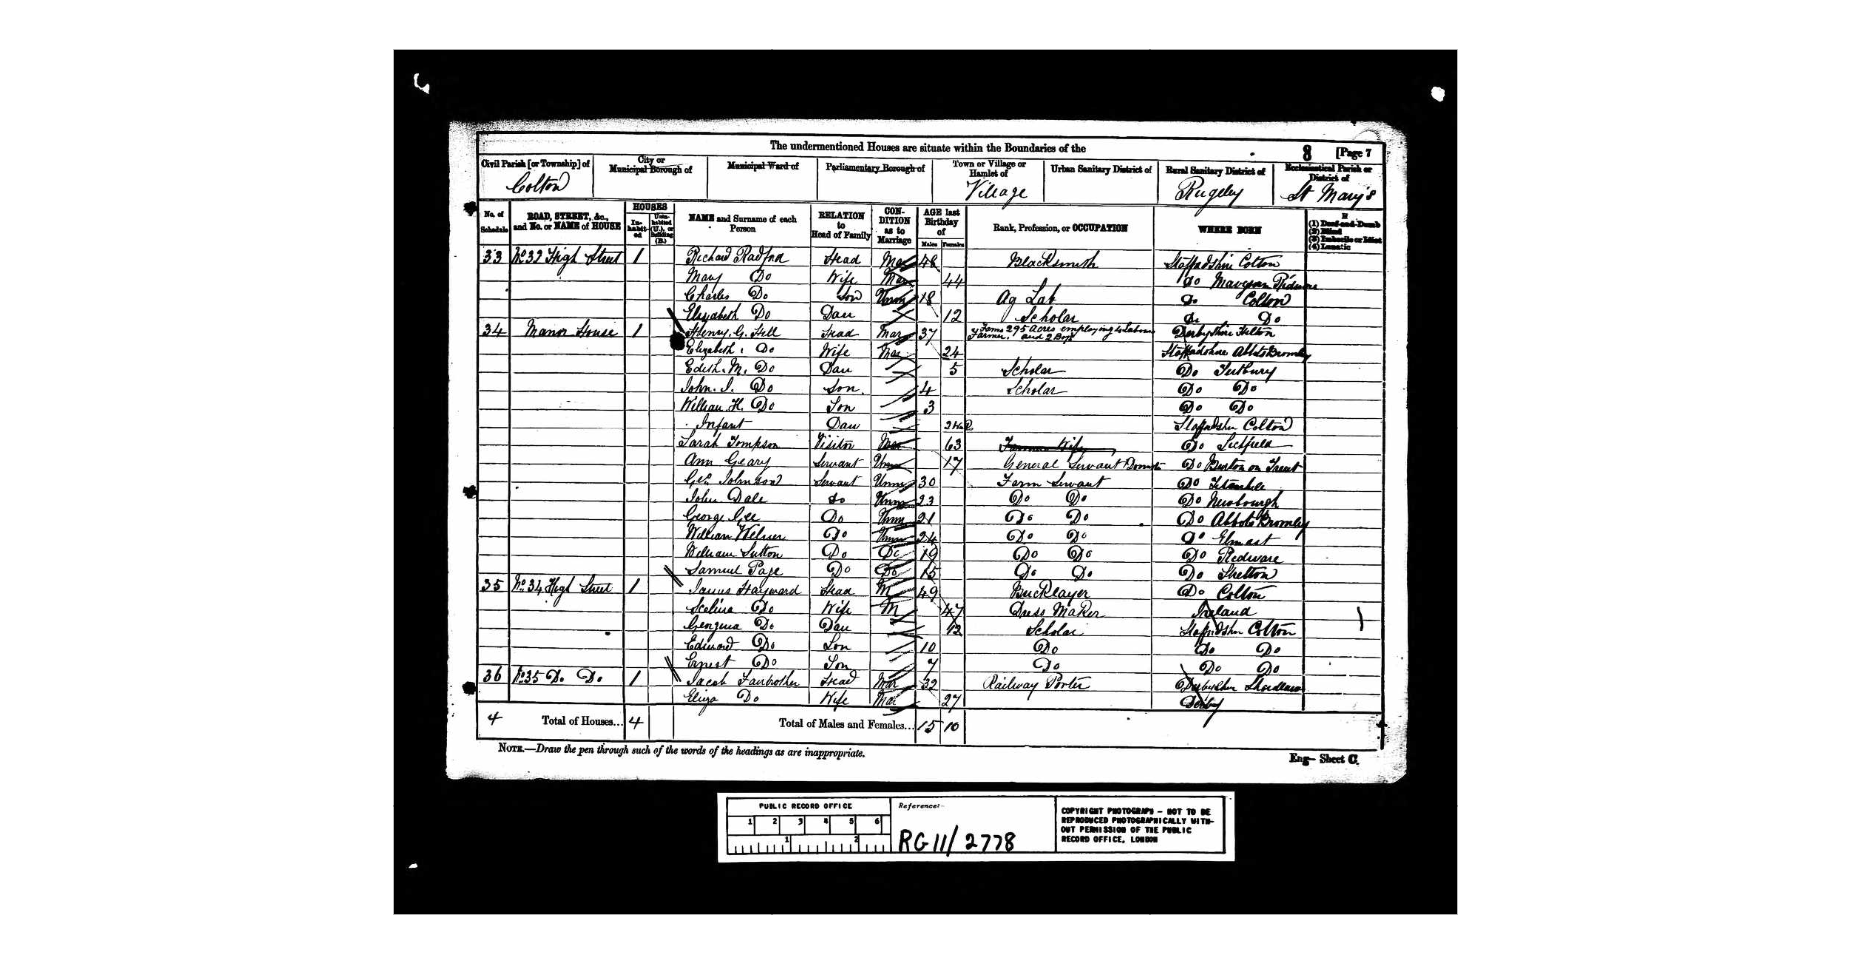 The undermentioned Houses are situate within the Boundaries of the
8 [Page 7
Civil Parish [or Township] of
City or Municipal Borough of
Municipal Ward of
Parliamentary Borough of
Town or Village or Hamlet of
Urban Sanitary District of
Rural Sanitary District of
Ecclesiastical Parish or District of
Colton Village Rugeley St Mary's
No. of Schedule
ROAD, STREET, &c., and No. or NAME of HOUSE
HOUSES
In-habit-ed
Unin-habited (U.), or building (B.)
NAME and Surname of each Person
RELATION to Head of Family
CON-DITION as to Marriage
AGE last Birthday of
Males Females
Rank, Profession, or OCCUPATION
WHERE BORN
If
(1) Deaf-and-Dumb
(2) Blind
(3) Imbecile or Idiot
(4) Lunatic
33 No 32 High Street 1 Richard Radford Head Mar 48 Blacksmith Staffordshire Colton
Mary Do Wife Mar 44 Do Mavesyn
Charles Do Son Unm 18 Ag Lab Do Colton
Elizabeth Do Dau 12 Scholar Do Do
34 Manor House 1 Henry G. Hill Head Mar 37 Farms 295 Acres employing 4 labours Farmer and 2 Boys Derbyshire Hilton
Elizabeth Do Wife Mar 24 Staffordshire Abbots Bromley
Edith M. Do Dau 5 Scholar Do Tutbury
John I. Do Son 4 Scholar Do Do
William H. Do Son 3 Do Do
Infant Dau Staffordshire Colton
Sarah Tomkson Visitor Mar 63 Farmers Wife Do Lichfield
Ann Geary Servant Unm 17 General Servant Domestic Do Burton on Trent
Geo Johnson Servant Unm 30 Farm Servant Do
John Dale Do Unm 23 Do Do Do Newborough
George Gee Do Unm 21 Do Do Do Abbots Bromley
William Do Unm 24 Do Do Do
William Sutton Do Do 19 Do Do Do Redware
Samuel Page Do Do 15 Do Do Do Shelton
35 No 34 High Street 1 James Hayward Head M 49 Bricklayer Do Colton
Selina Do Wife M 47 Dress Maker Ireland
Georgina Do Dau 12 Scholar Staffordshire Colton
Edward Do Son 10 Do Do Do
Ernest Do Son 7 Do Do Do
36 No 35 Do Do 1 Jacob Fairbrother Head Mar 32 Railway Porter Derbyshire
Eliza Do Wife Mar 27 Derby
4 Total of Houses... 4 Total of Males and Females... 15 10
NOTE.—Draw the pen through such of the words of the headings as are inappropriate.
Eng—Sheet C.
PUBLIC RECORD OFFICE
1 2 3 4 5 6
1 2
Reference:-
RG 11/2778
COPYRIGHT PHOTOGRAPH - NOT TO BE
REPRODUCED PHOTOGRAPHICALLY WITH-
OUT PERMISSION OF THE PUBLIC
RECORD OFFICE, LONDON